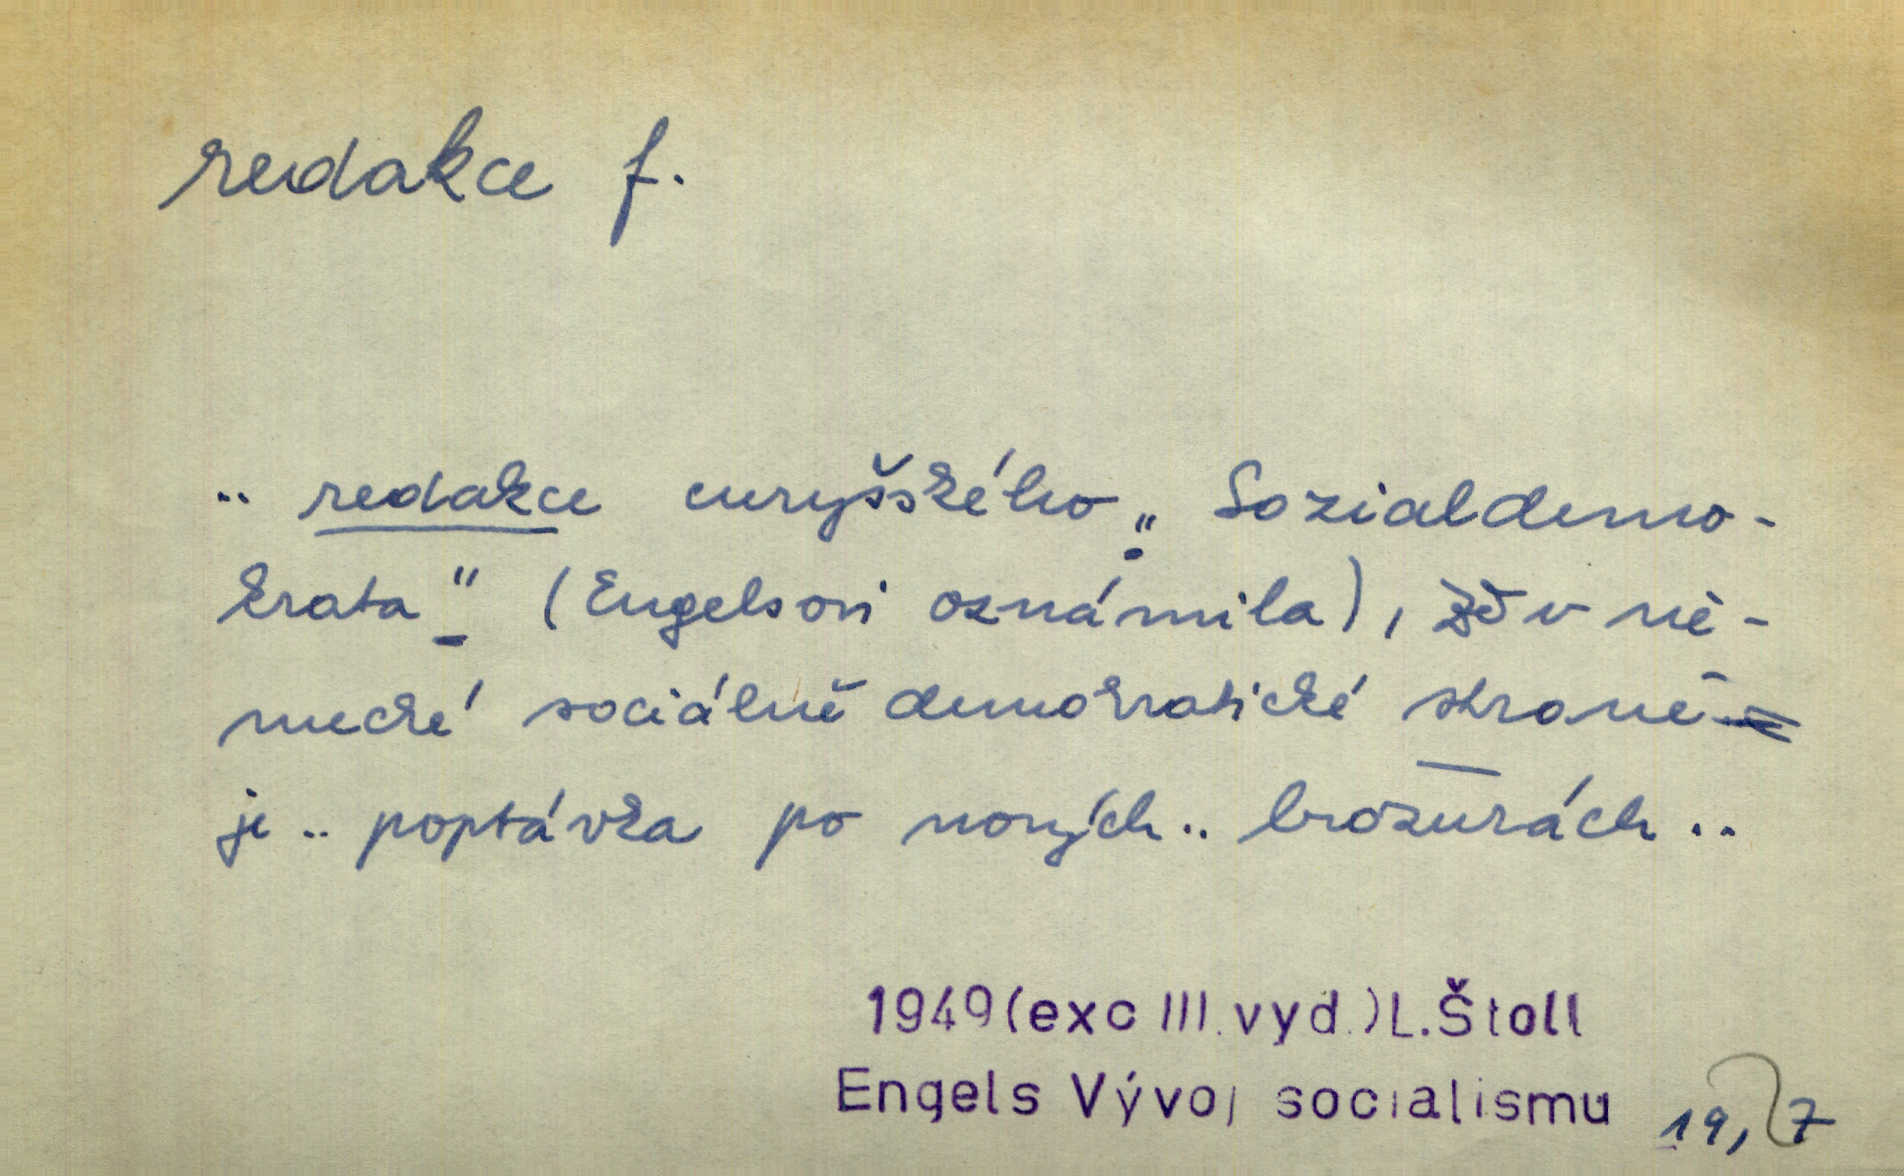 redakce f.
.. redakce curyšského „Sozialdemo-
krata" (Engelsovi oznámila), že v ně-
mecké sociálně demokratické straně
je .. poptávka po nových .. brožurách ..
1949 (exc III. vyd.) L. Štoll
Engels Vývoj socialismu 19, 7